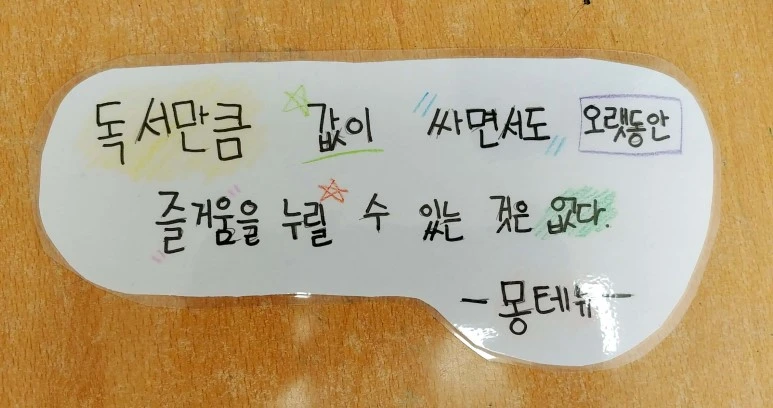 독서만큼 값이 싸면서도 오랫동안
즐거움을 누릴 수 있는 것은 없다.
- 몽테뉴 -